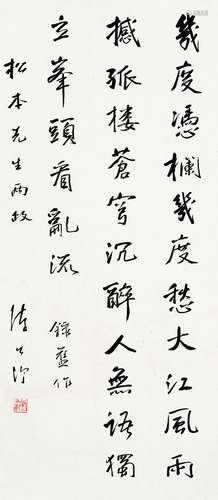 幾度憑欄幾度愁大江風雨
撼孤樓蒼穹沉醉人無語獨
立峯頭看亂流 錄舊作
松本先生兩教